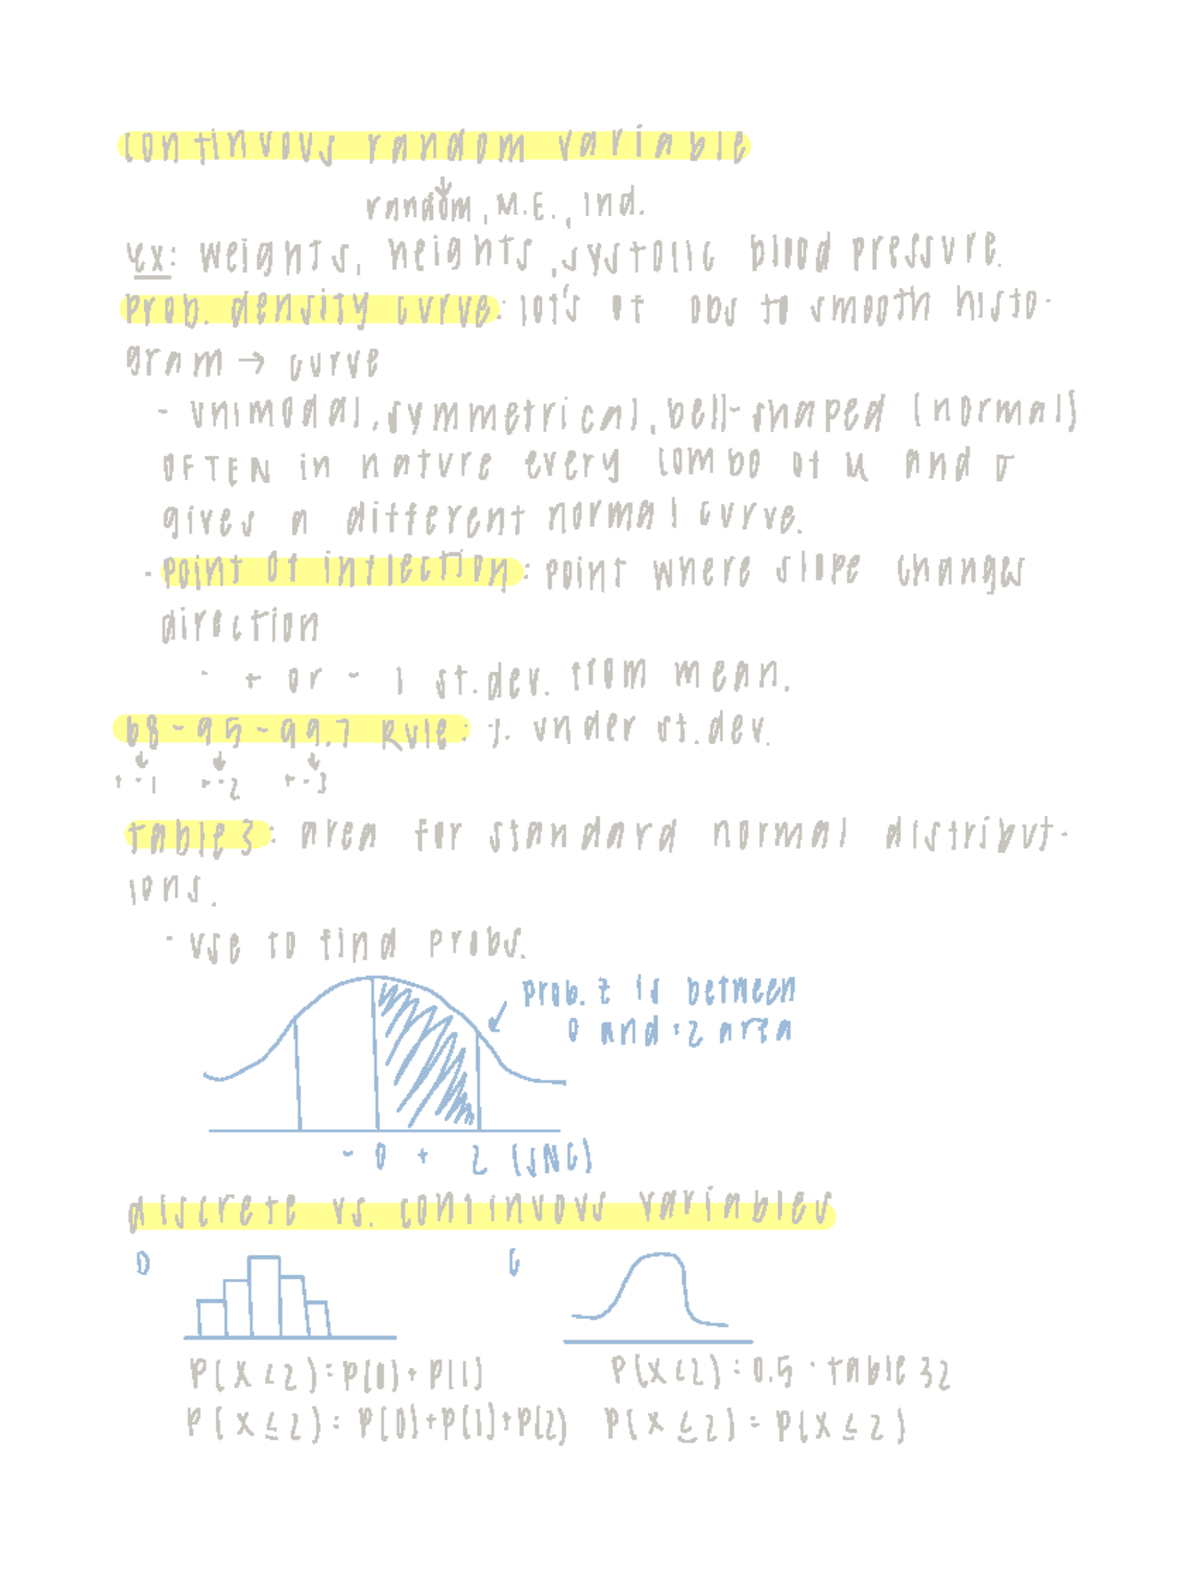 continuous random variable
random, M.E., ind.
ex: weights, heights, systolic blood pressure.
prob. density curve: lot's of obs to smooth histo-
gram → curve
- unimodal, symmetrical, bell-shaped (normal)
OFTEN in nature every combo of μ and σ
gives a different normal curve.
- point of inflection: point where slope changes
direction
- + or - 1 st.dev. from mean.
68-95-99.7 Rule: %. under st.dev.
+-1 +-2 +-3
Table 3: area for standard normal distribut-
ions.
- use to find probs.
prob. z is between
0 and z area
- 0 + z (SNC)
discrete vs. continuous variables
D C
P(X<2)=P(0)+P(1) P(X<2)=0.5 + table 3z
P(X≤2)=P(0)+P(1)+P(2) P(X≤2)=P(X≤2)